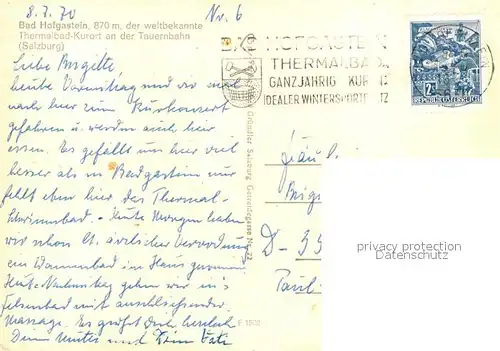 8.7.70
Nr. 6
Bad Hofgastein, 870 m, der weltbekannte
Thermalbad-Kurort an der Tauernbahn
(Salzburg)
BAD HOFGASTEIN
THERMALBAD
GANZJÄHRIG KUR
IDEALER WINTERSPORTPLATZ
2S
REPUBLIK ÖSTERREICH
Liebe Birgitte
heute Vormittag sind wir mal
nach hier zum Kurkonzert
gefahren u. werden auch hier
essen. Es gefällt uns hier viel
besser als in Badgastein nur
fehlt eben hier das Thermal-
schwimmbad. - Heute Morgen haben
wir schon lt. ärztlicher Verordnung
ein Wannenbad im Haus genommen
Heute Nachmittag gehen wir ins
Felsenbad mit anschliessender
Massage. Es grüßt Dich herzlich
Deine Mutti und Dein Vati
Gründler Salzburg Getreidegasse Nr. 22
F 1502
Fräul
Birgi
D-35
Paul
privacy protection
Datenschutz